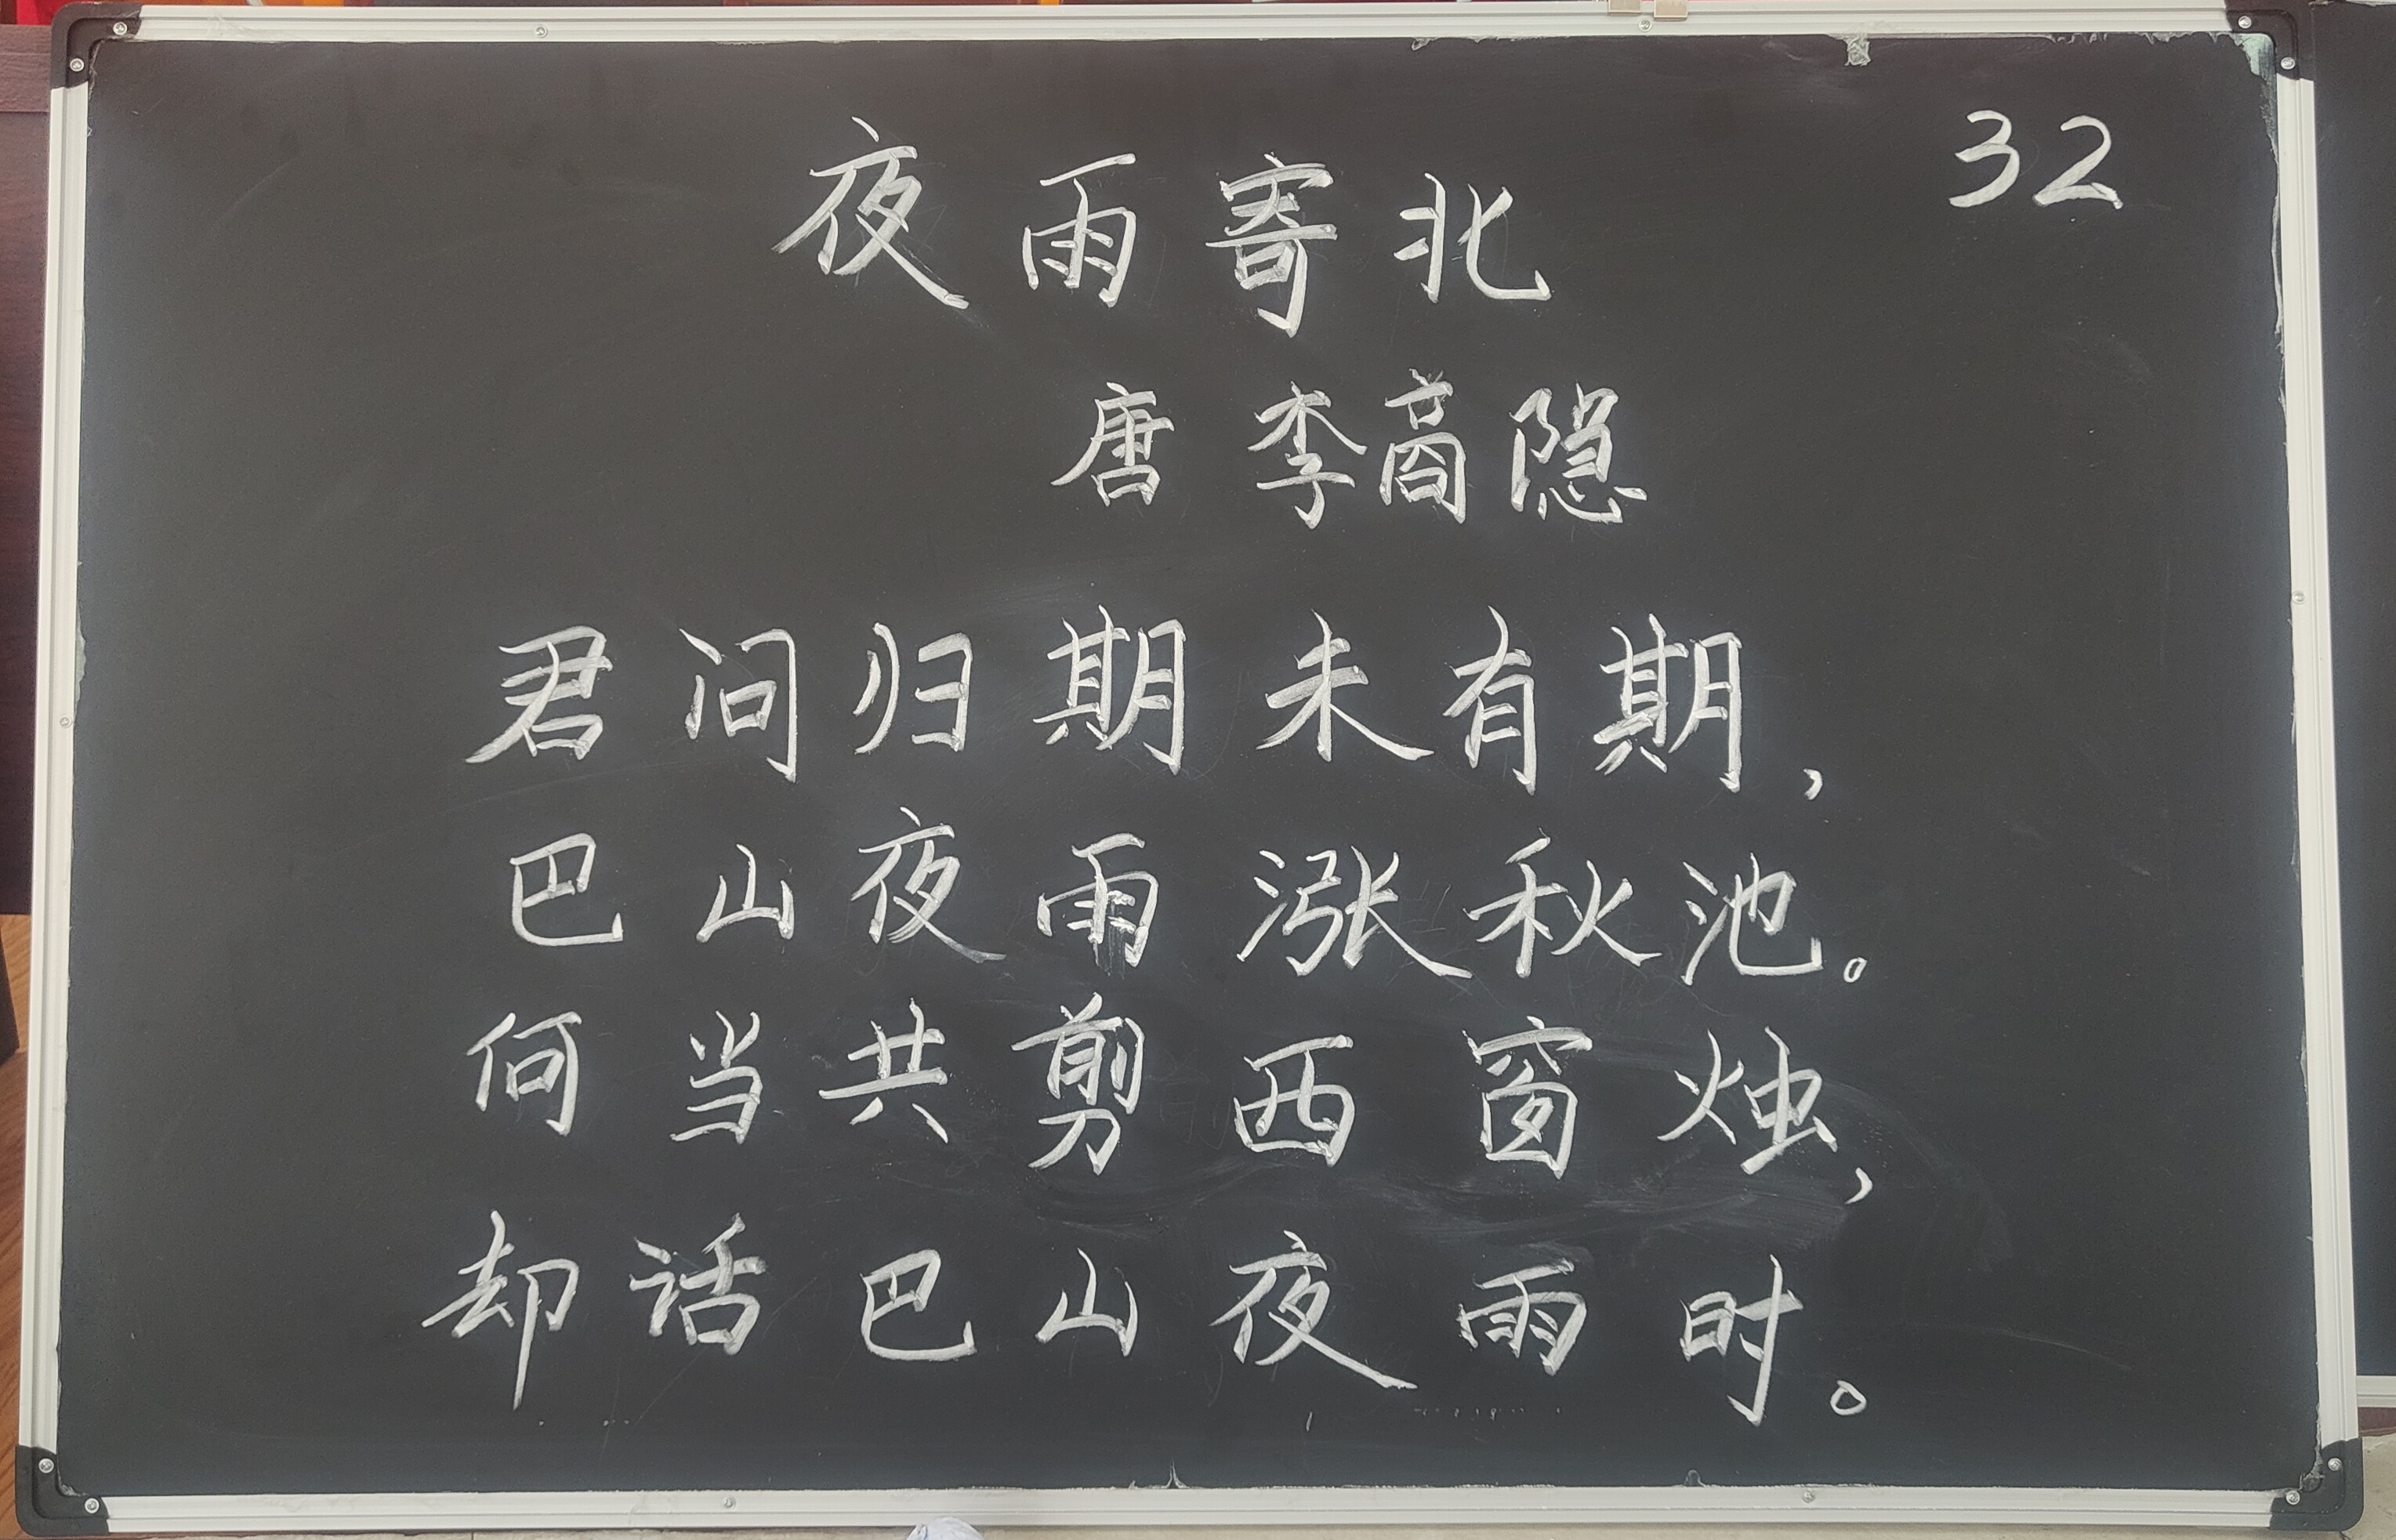 32
夜雨寄北
唐 李商隐
君问归期未有期，
巴山夜雨涨秋池。
何当共剪西窗烛，
却话巴山夜雨时。